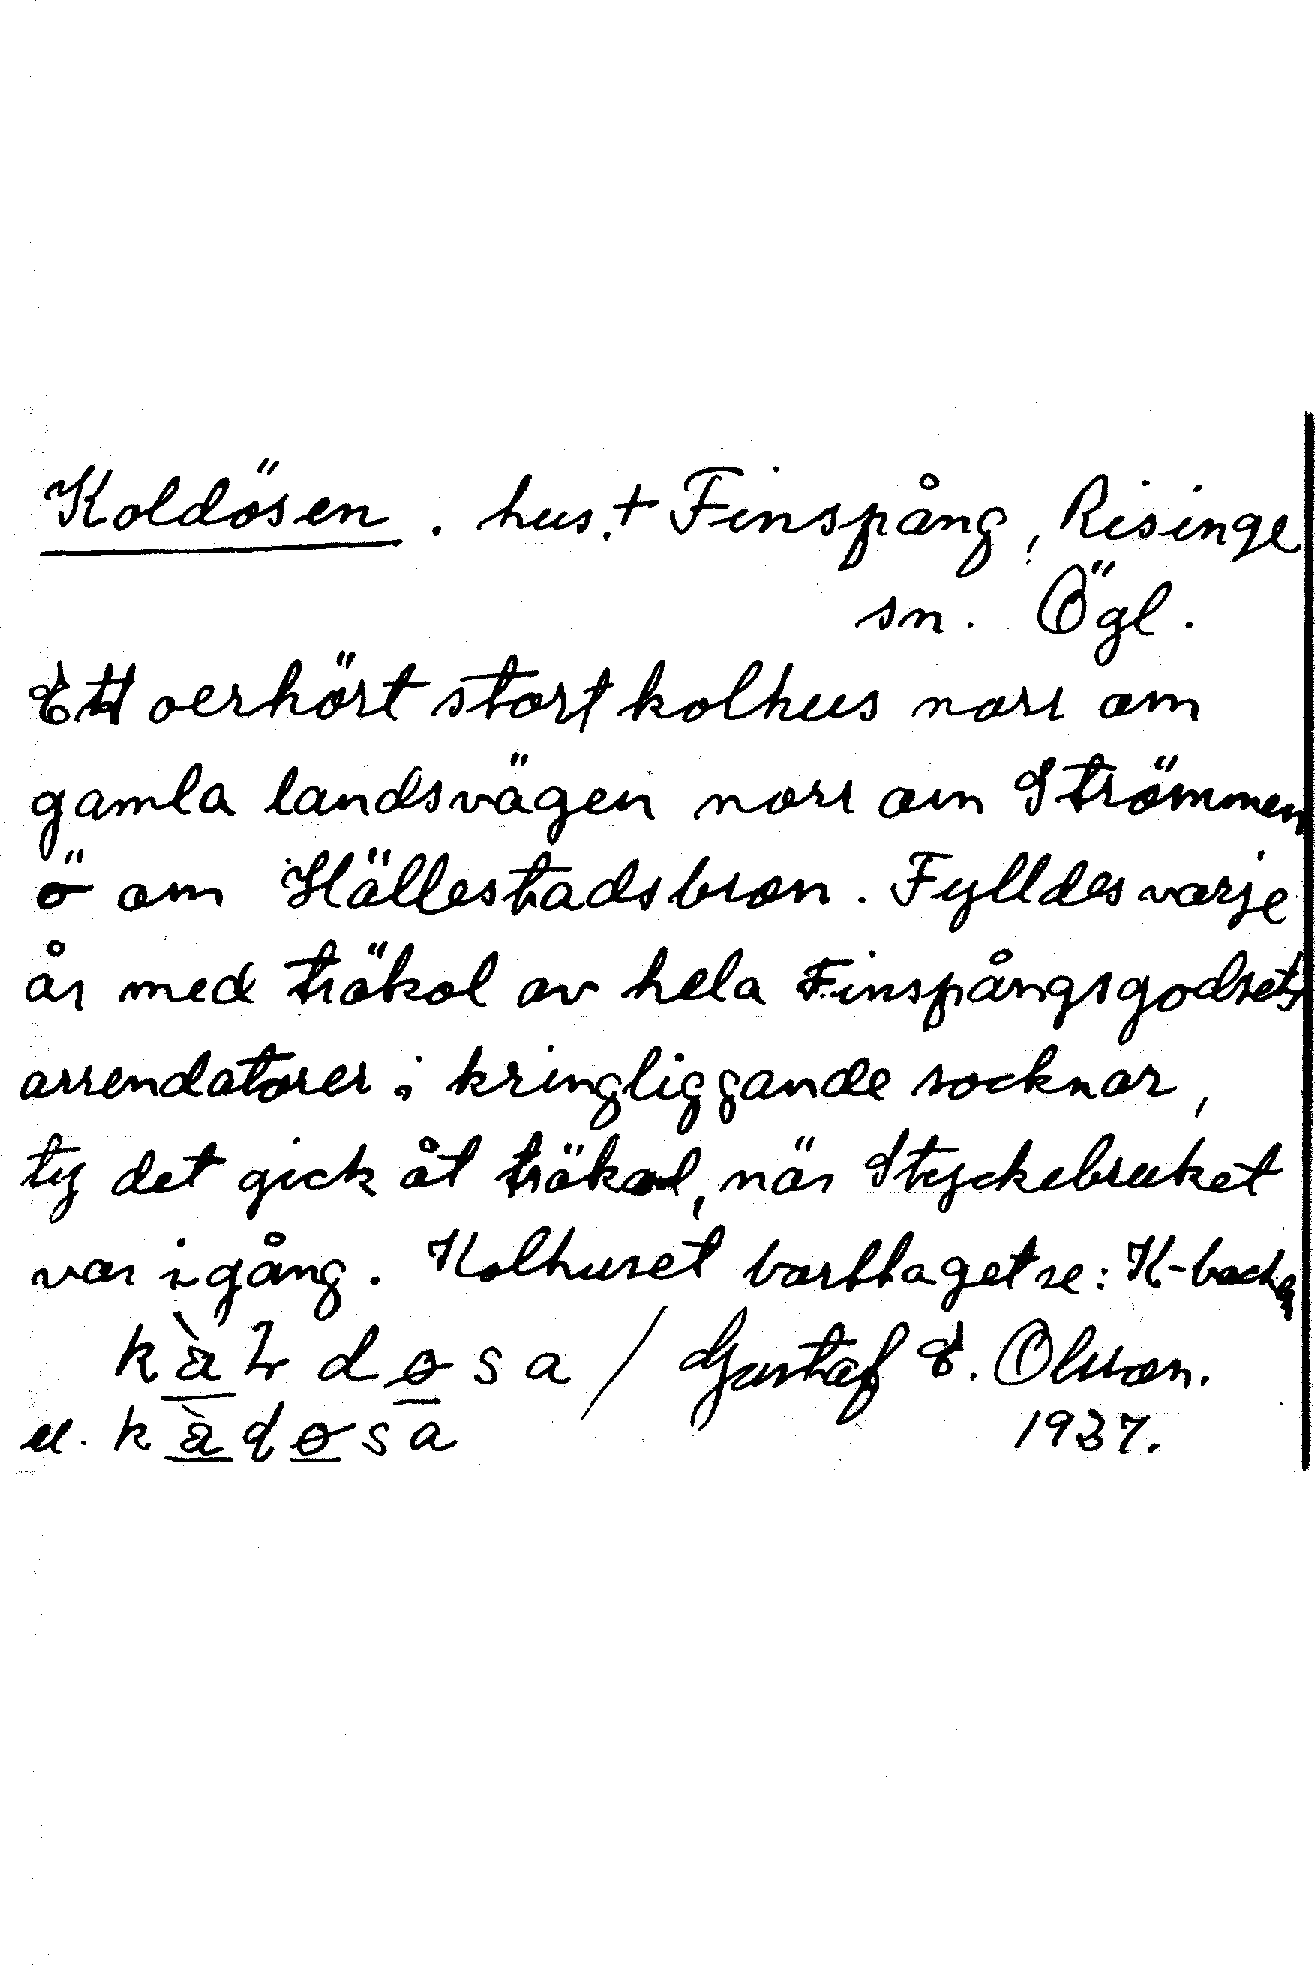 Koldösen. hus.† Finspång, Risinge
sn. Ögl.
Ett oerhört stort kolhus norr om
gamla landsvägen norr om Strömmen
ö om Hällestadsbron. Fylldes varje
år med träkol av hela Finspångsgodsets
arrendatorer i kringliggande socknar,
ty det gick åt träkol, när Styckebruket
var igång. Kolhuset borttaget se: K-backen
/ Gustaf E. Olsson.
el. 1937.